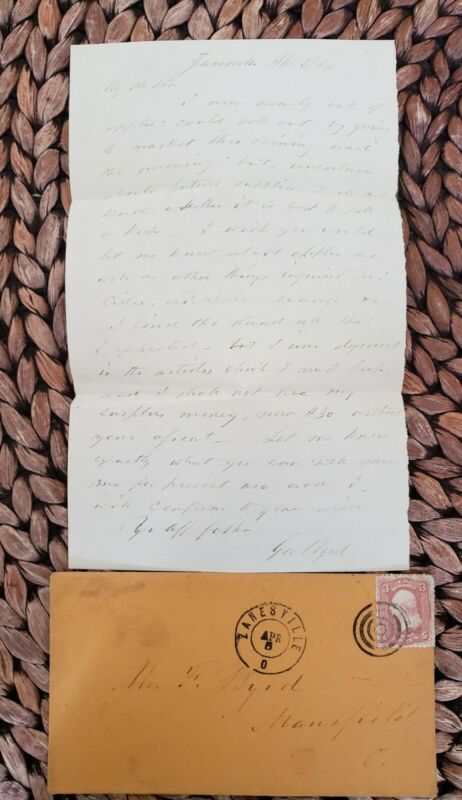 My
I am nearly out of
apples could sell out by going
to market this evening and
the morning but uncertain
about future supplies I do not
know whether it is best to sell
or keep. I wish you would
let me know about apples as
well as other things inquired for:
Cider, oranges &c
I find the stand all that
I expected - but I am deficient
in the articles which I must keep,
and I shall not use my
surplus money, now $30 without
your assent - Let me know
exactly what you can spare
me for present use and I
will conform to your wishes
Yr Aff father
Geo Byrd
ZANESVILLE
APR
5
O
3
3
Mr. F. Byrd
Mansfield
O.